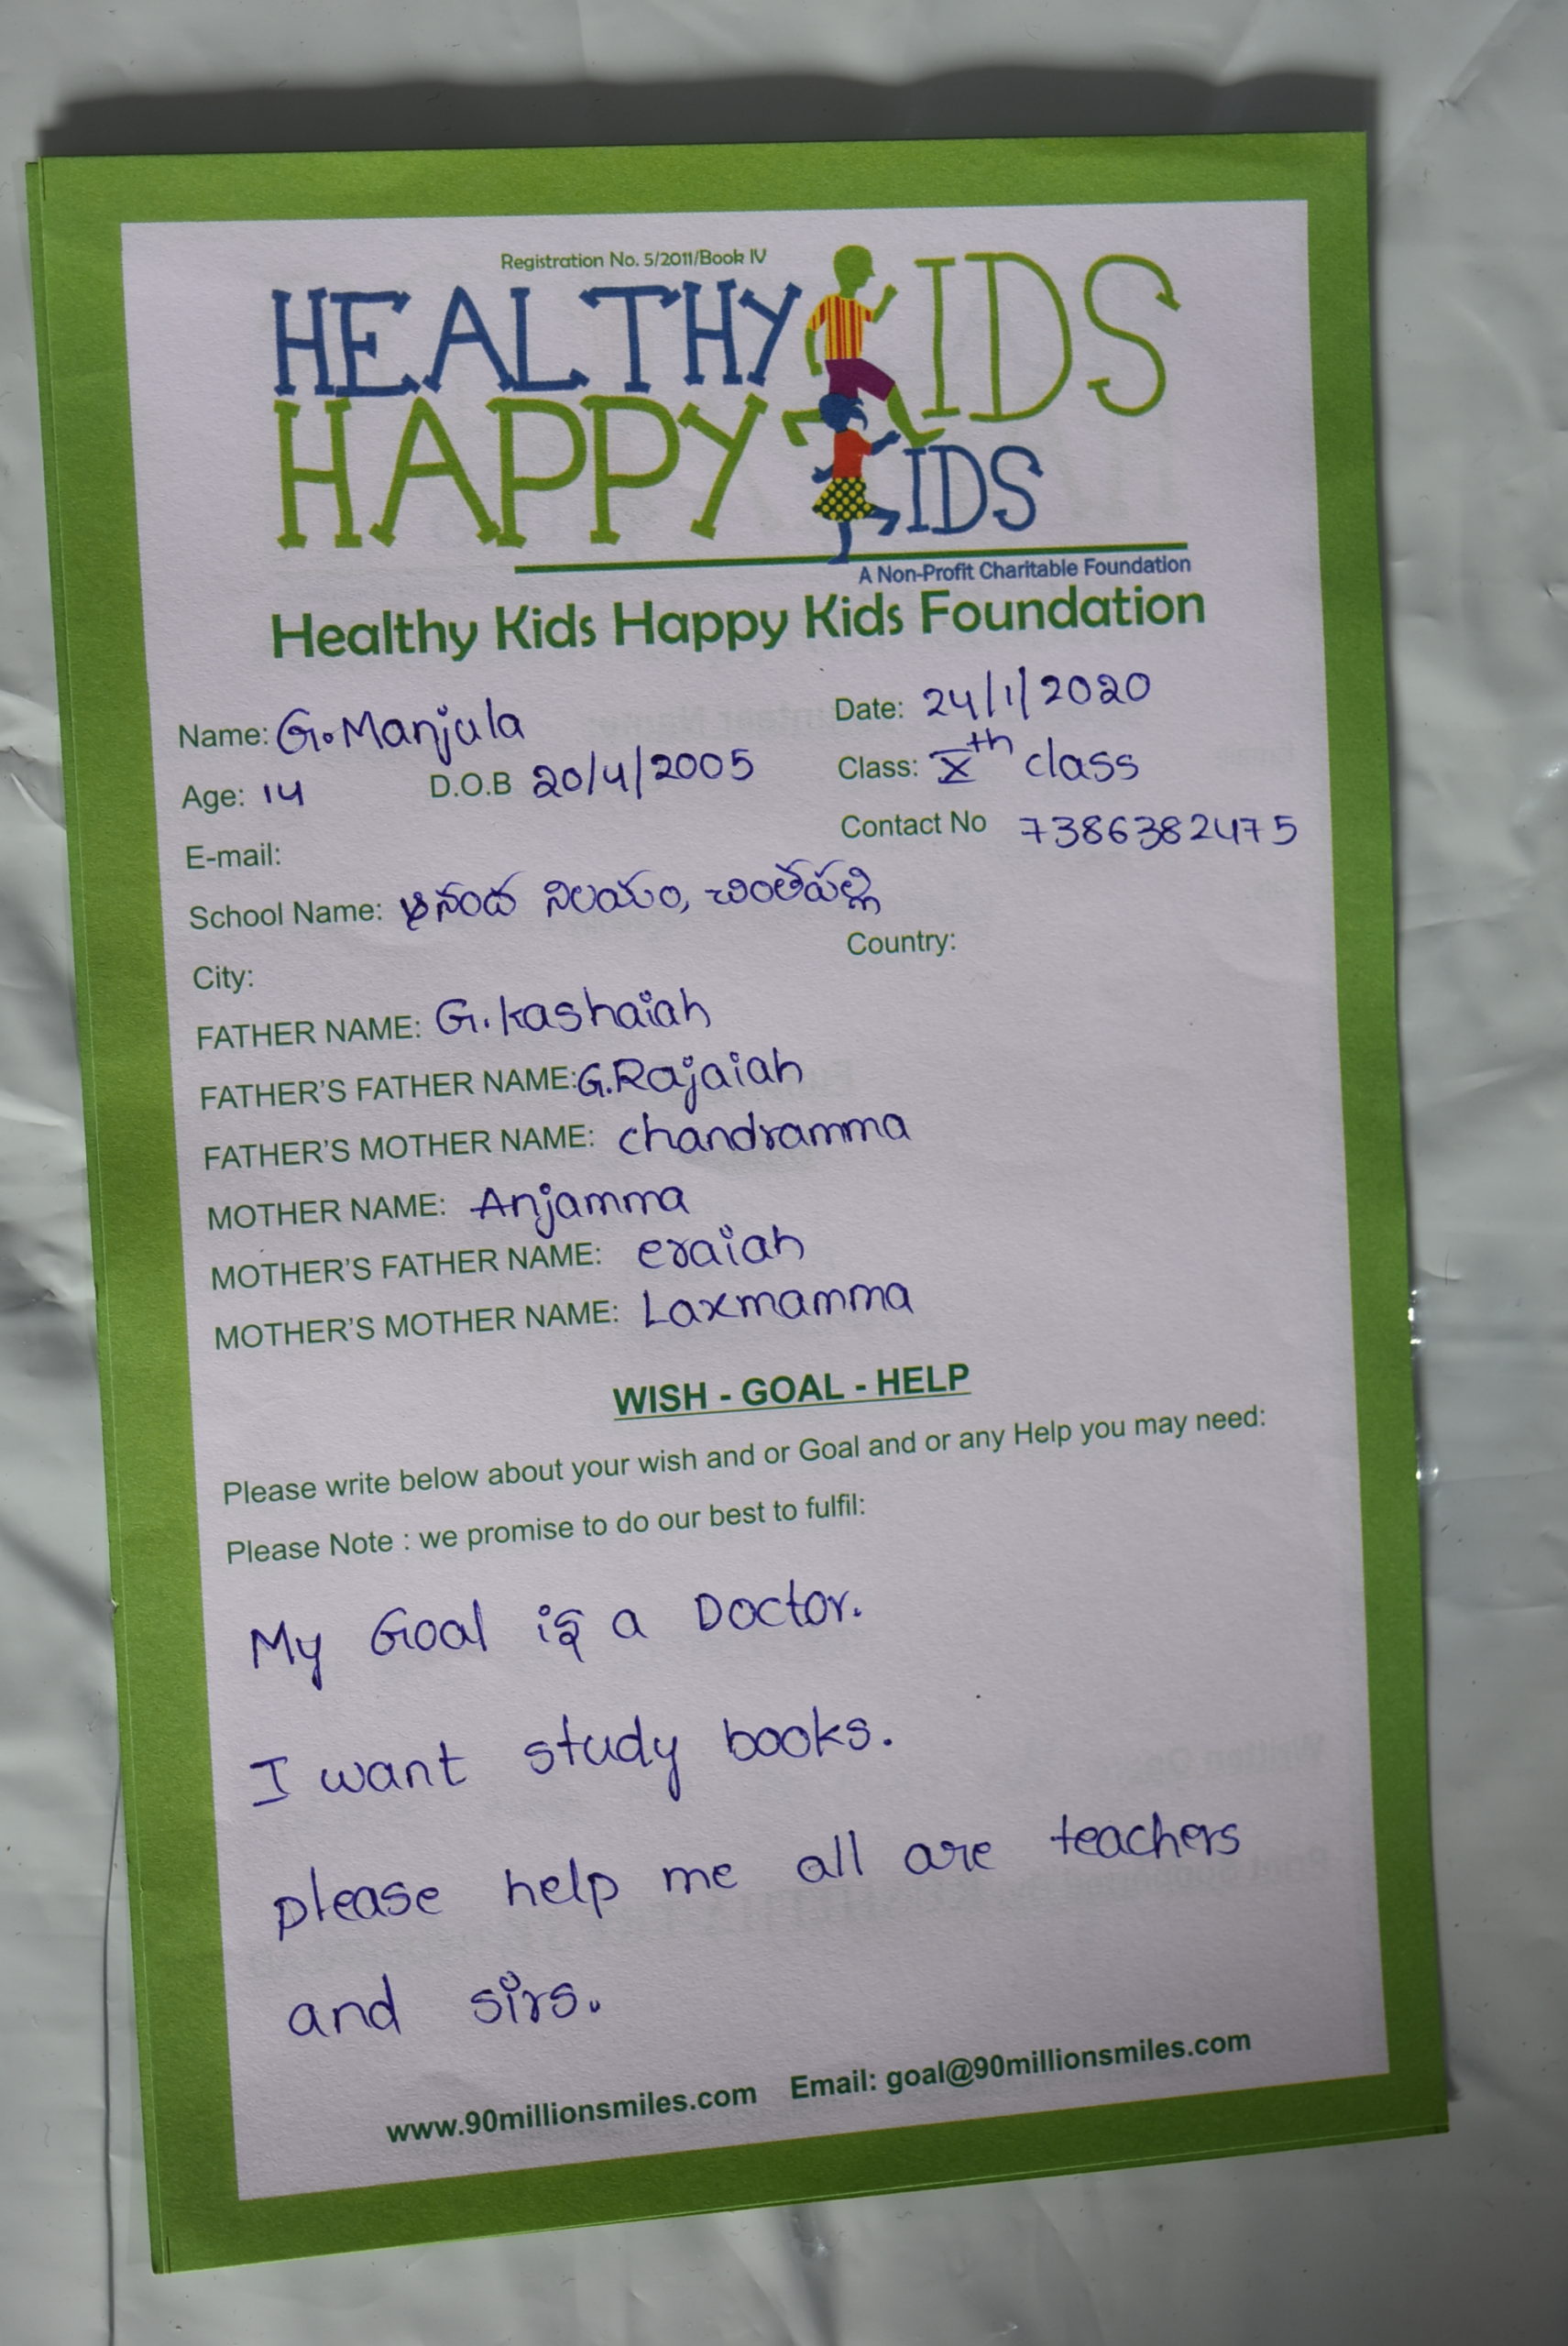 Registration No. 5/2011/Book IV
HEALTHY KIDS
HAPPY KIDS
A Non-Profit Charitable Foundation
Healthy Kids Happy Kids Foundation
Name: G. Manjula Date: 24/1/2020
Age: 14 D.O.B 20/4/2005 Class: Xth class
E-mail: Contact No 7386382475
School Name: ఆనంద నిలయం, చింతపల్లి
City: Country:
FATHER NAME: G. kashaiah
FATHER'S FATHER NAME: G. Rajaiah
FATHER'S MOTHER NAME: chandramma
MOTHER NAME: Anjamma
MOTHER'S FATHER NAME: eraiah
MOTHER'S MOTHER NAME: Laxmamma
WISH - GOAL - HELP
Please write below about your wish and or Goal and or any Help you may need:
Please Note : we promise to do our best to fulfil:
My Goal is a Doctor.
I want study books.
please help me all are teachers
and sirs.
www.90millionsmiles.com Email: goal@90millionsmiles.com